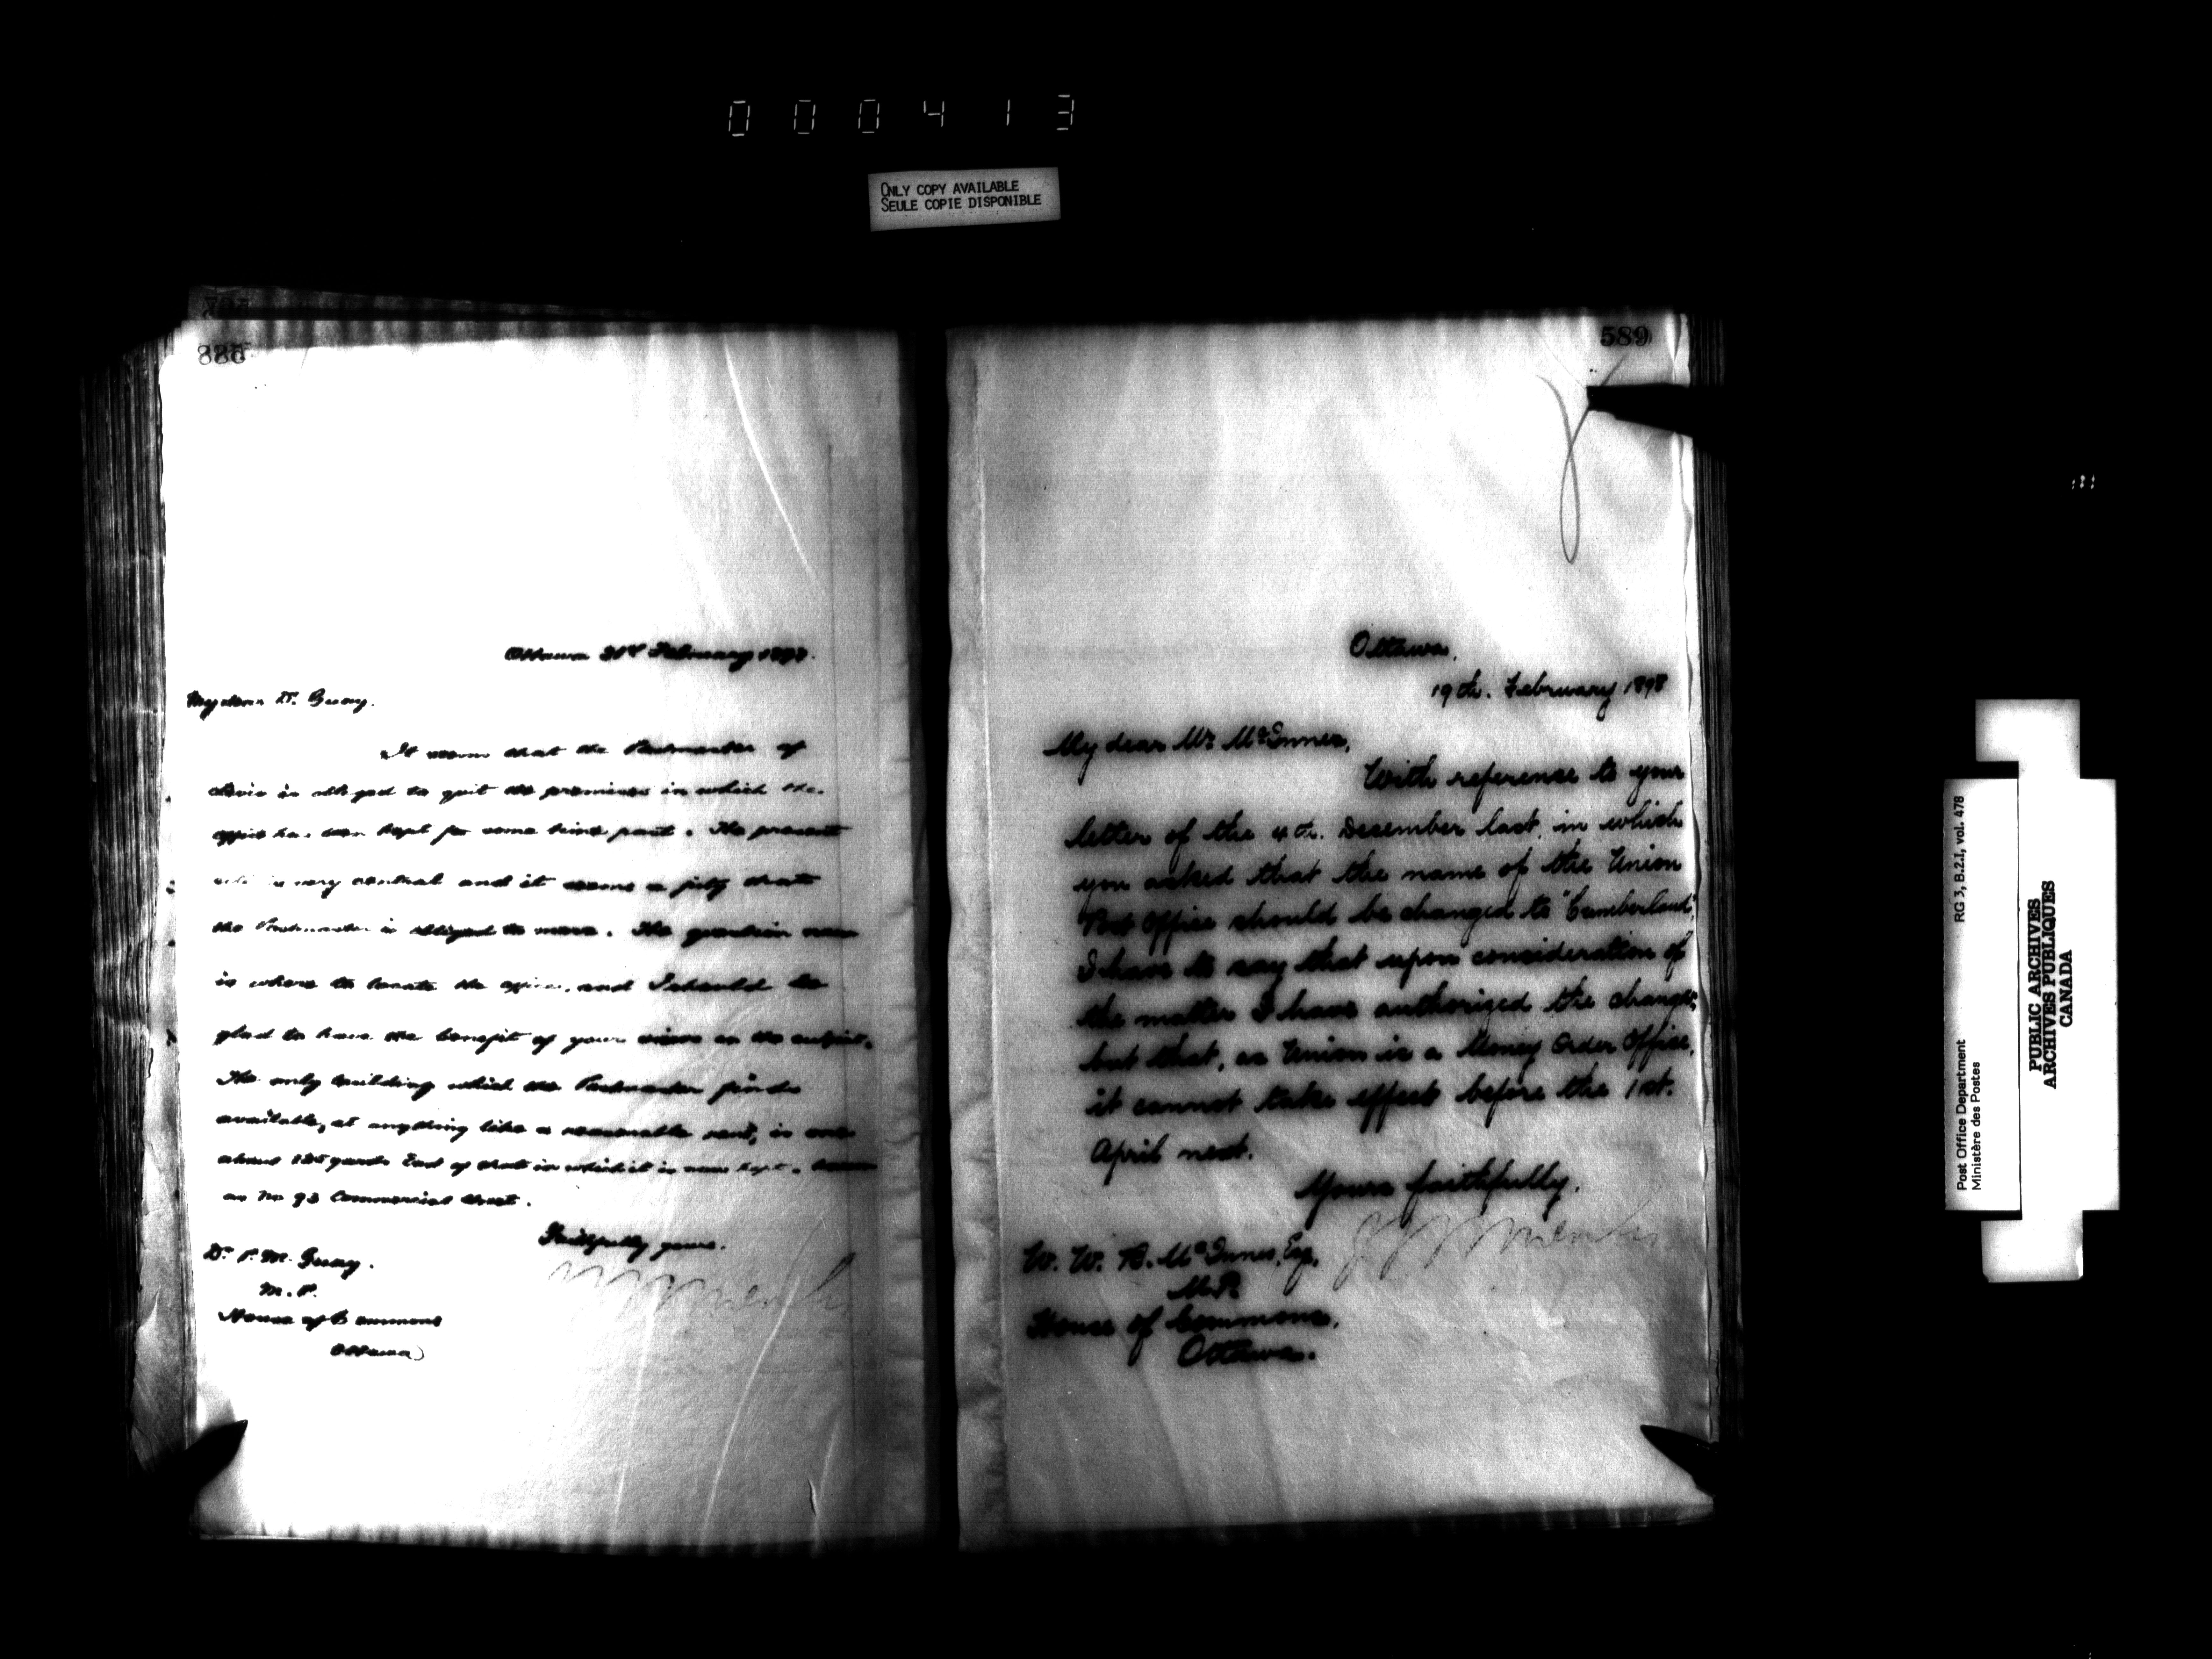 000413
ONLY COPY AVAILABLE
SEULE COPIE DISPONIBLE
Ottawa 21st February 1898.
My dear Dr. Guay.
It seems that the Postmaster of
Levis is obliged to quit the premises in which the
office has been kept for some time past. The present
site is very central and it seems a pity that
the Postmaster is obliged to move. The question now
is where to locate the office, and I should be
glad to have the benefit of your views on the subject.
The only building which the Postmaster finds
available, at anything like a reasonable rent, is one
about 125 yards East of that in which it is now kept. known
as No 93 Commercial Street.
Faithfully yours.
Dr. P. M. Guay.
M. P.
House of Commons
Ottawa
589
Ottawa,
19th. February 1898
My dear Mr. McInnes,
With reference to your
letter of the 4th. December last, in which
you asked that the name of the Union
Post Office should be changed to "Cumberland",
I have to say that upon consideration of
the matter I have authorized the change,
but that, as Union is a Money Order Office,
it cannot take effect before the 1st.
April next.
Yours faithfully,
W. W. B. McInnes, Esq.,
M.P.
House of Commons,
Ottawa.
Post Office Department
Ministère des Postes
RG 3, B.2.1, vol. 478
PUBLIC ARCHIVES
ARCHIVES PUBLIQUES
CANADA